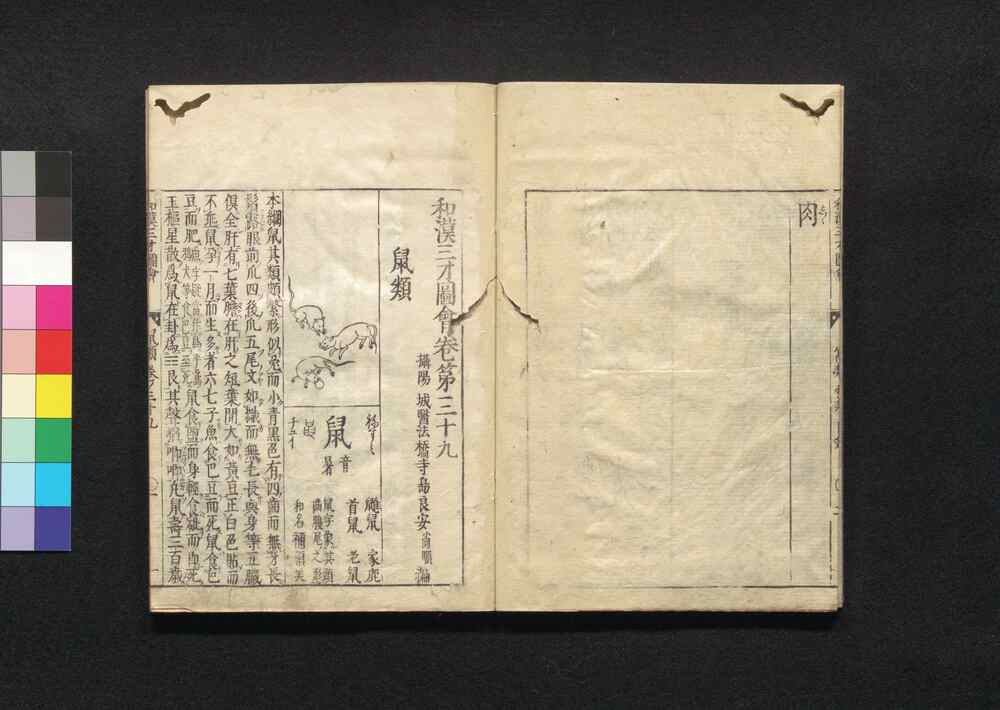 肉
和漢三才圖會卷第三十九
攝陽 城醫法橋寺島良安尚順編
鼠類
鼠
音暑
ねすみ
鼫鼠 家鹿
首鼠 老鼠
鼠字象其頭
齒腹尾之形
和名禰須美
本綱鼠其類頗繁形似兔而小青黑色有四齒而無牙長
鬚露眼前爪四後爪五尾文如織而無毛長與身等五臟
俱全肝有七葉膽在肝之短葉間大如黃豆正白色貼而
不垂鼠孕一月而生多者六七子魚食巴豆而死鼠食巴
豆而肥鼠食鹽而身輕食砒而即死
玉樞星散爲鼠在卦爲艮其聲猶喞喞凡鼠壽三百歲
和漢三才圖會 鼠類 卷ノ三十九